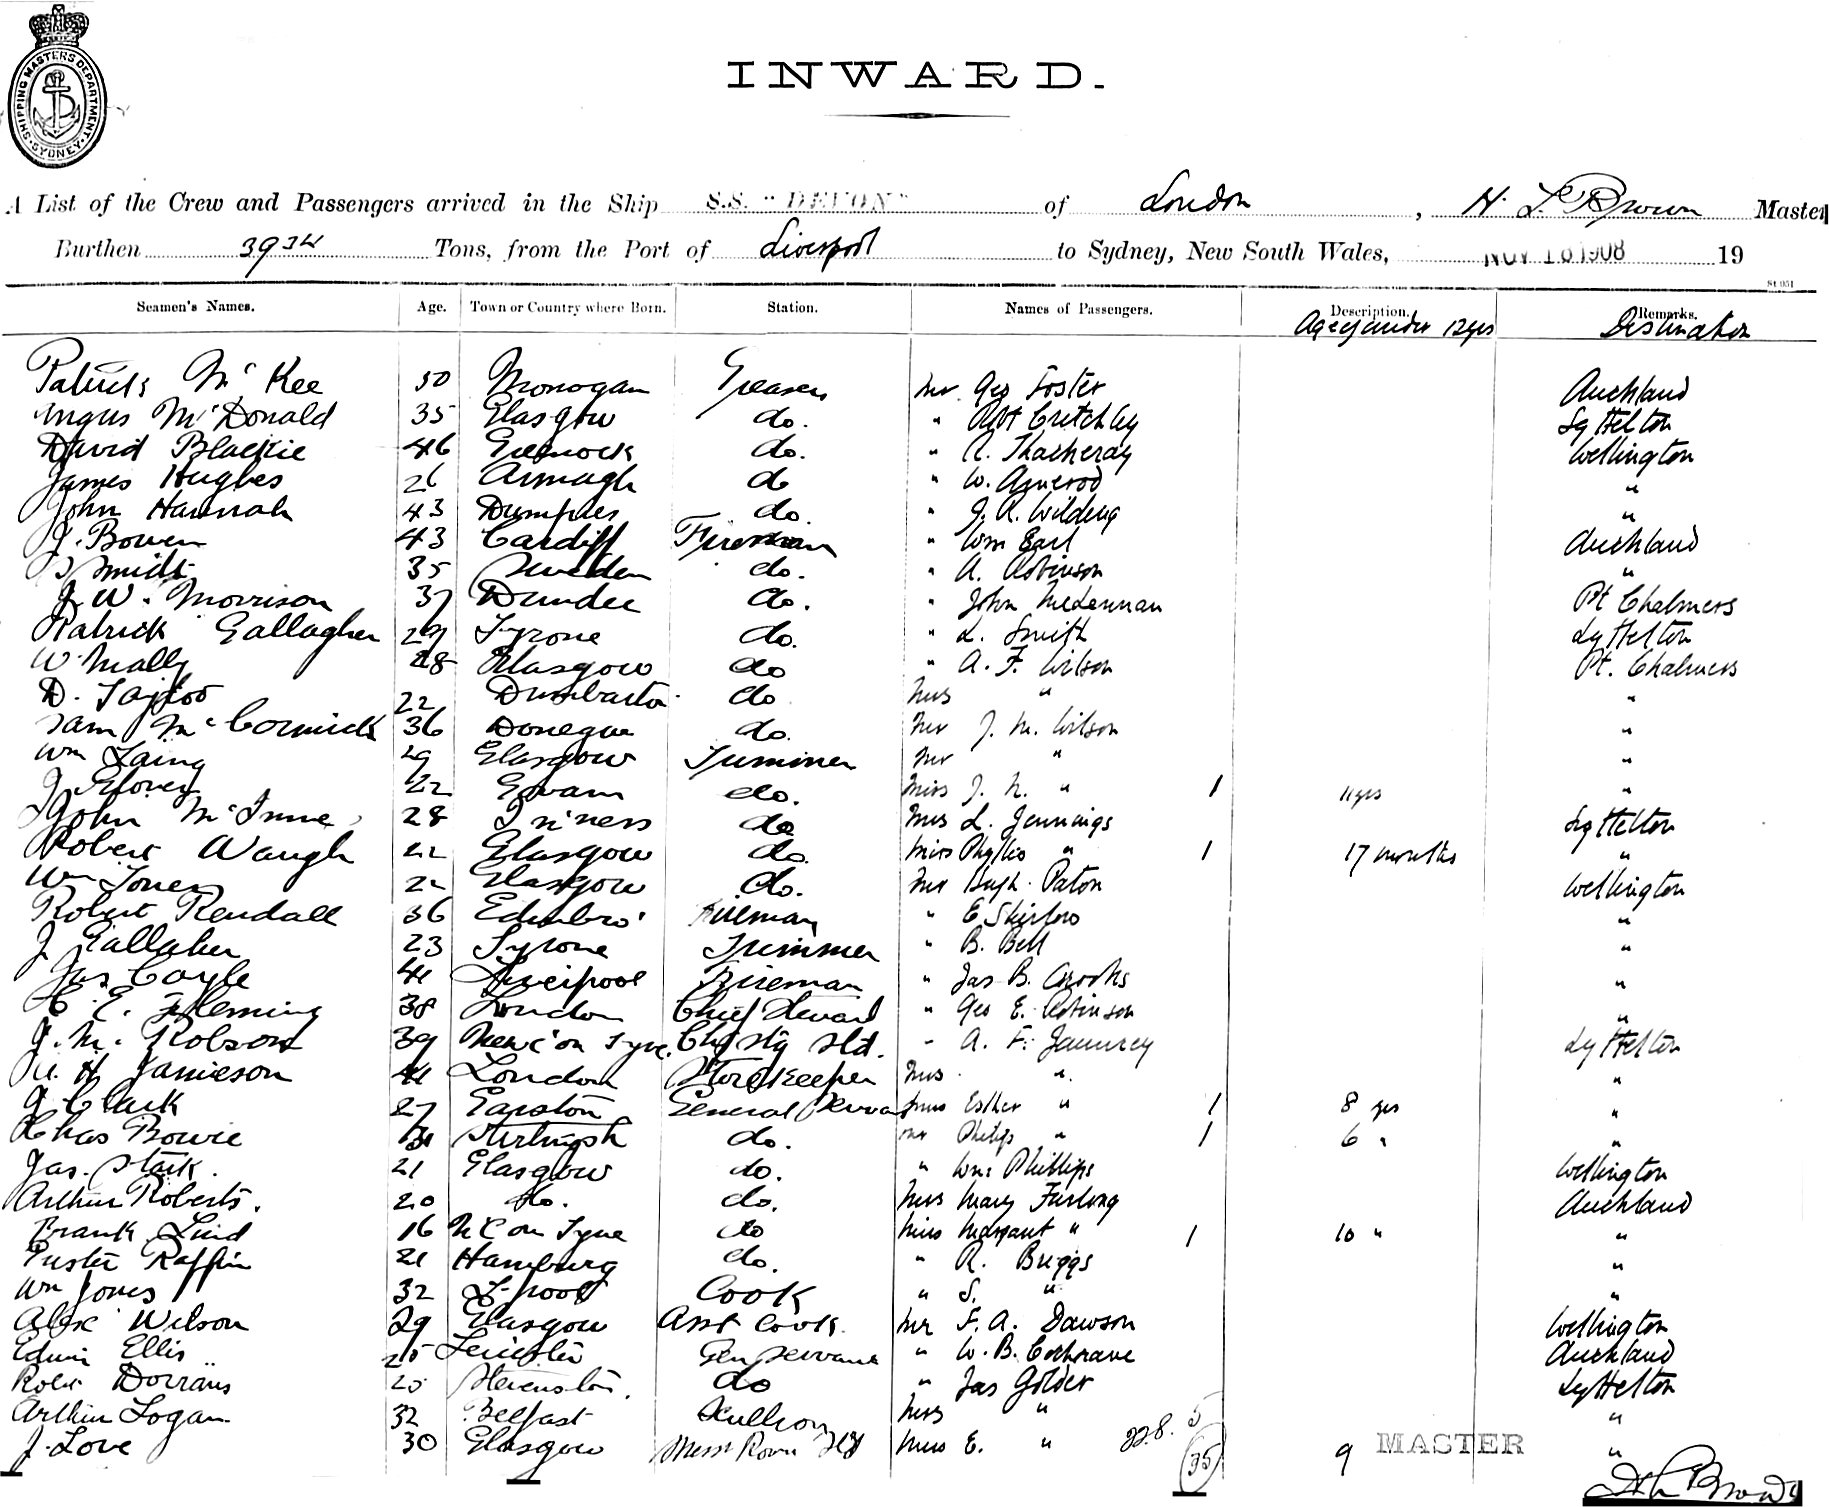 SHIPPING MASTERS DEPARTMENT
SYDNEY
INWARD.
A List of the Crew and Passengers arrived in the Ship S.S. "DEVON" of London, H. L. Brown Master
Burthen Tons, from the Port of Liverpool to Sydney, New South Wales, NOV 18 1908 19
St 951
Seamen's Names. Age. Town or Country where Born. Station. Names of Passengers. Description. Remarks.
Age if under 12 yrs Destination
Patrick McKee 50 Monogan Greaser Mr Geo Foster Auckland
Angus McDonald 35 Glasgow do. " Robt Critchley Lyttelton
David Blackie 46 Greenock do. " R. Thackeray Wellington
James Hughes 26 Armagh do " W. "
John Hannah 43 Dumfries do. " J. R. Wilding "
J. Bowen 43 Cardiff Fireman " Wm Earl Auckland
Smidt 35 Sweden do. " A. Robinson "
J. W. Morrison 37 Dundee do. " John McLennan Pt Chalmers
Patrick Gallagher 29 Tyrone do. " L. Smith Lyttelton
W. Mally 28 Glasgow do " A. F. Wilson Pt. Chalmers
D. Taylor 22 Dumbarton do Mrs " "
Sam McCormick 36 Donegal do. Mr J. M. Wilson "
Wm Laing 29 Glasgow Trimmer Mr " "
J. 22 Govan do. Miss J. N. " 1 11 yrs "
John McInnes 28 In'ness do Mrs L. Jennings Lyttelton
Robert Waugh 22 Glasgow do. Miss Phyllis " 1 17 months "
Wm Glasgow do. Mr Hugh Paton Wellington
Robert Rendall 36 Edinbro' Fireman " E "
J. Gallaher 23 Tyrone Trimmer " B. Bell "
Jas Coyle 41 Liverpool Fireman " Jas B. Crooks "
C. E. Fleming 38 London Chief Steward " Geo E. Robinson "
J. M. Robson 39 Newc' on Tyne Ch Stg Std. " A. F. Lyttelton
H. Jamieson 41 London Storekeeper Mrs " "
J. Clark 27 General Servant Miss Esther " 1 8 yrs "
Chas Bowie do. Mr Philip " 1 6 " "
Jas. Stark. 21 Glasgow do. " Wm. Phillips Wellington
Arthur Roberts. 20 do. do. Mrs Mary Furlong Auckland
Frank Lind 16 N C on Tyne do Miss Margaret " 1 10 " "
21 Hamburg do. " R. Briggs "
Wm Jones 32 L-pool Cook " S. " "
Alex Wilson 29 Glasgow Asst Cook. Mr F. A. Dawson Wellington
Edwin Ellis Leicester Gen Servant " W. B. Cochrane Auckland
Robt Dorrans Stevenston. do " Jas Golder Lyttelton
Arthur Logan 32 Belfast Scullion Mrs " "
J. Love 30 Glasgow Mess Room Std Miss E. " 9 "
5
35
MASTER
H L Brown